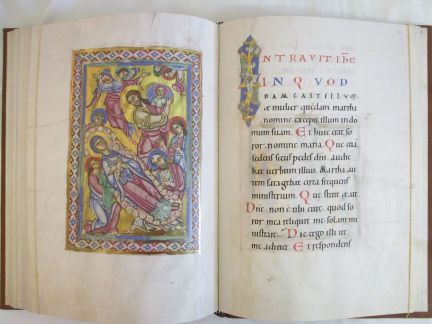 INTRAVIT IHC
IN QVOD
DAM CASTELLVM.
et mulier quedam martha
nomine excepit illum in do
mum suam. Et huic erat so
ror nomine maria. Que
sedens secus pedes dni. audie
bat verbum illius. Martha au
tem satagebat circa frequens
ministerium. Que stetit et ait.
Dne. non e tibi cure. quod so
ror mea reliquit me solam mi
nistrare. Dic ergo illi ut
me adiuvet. Et respondens